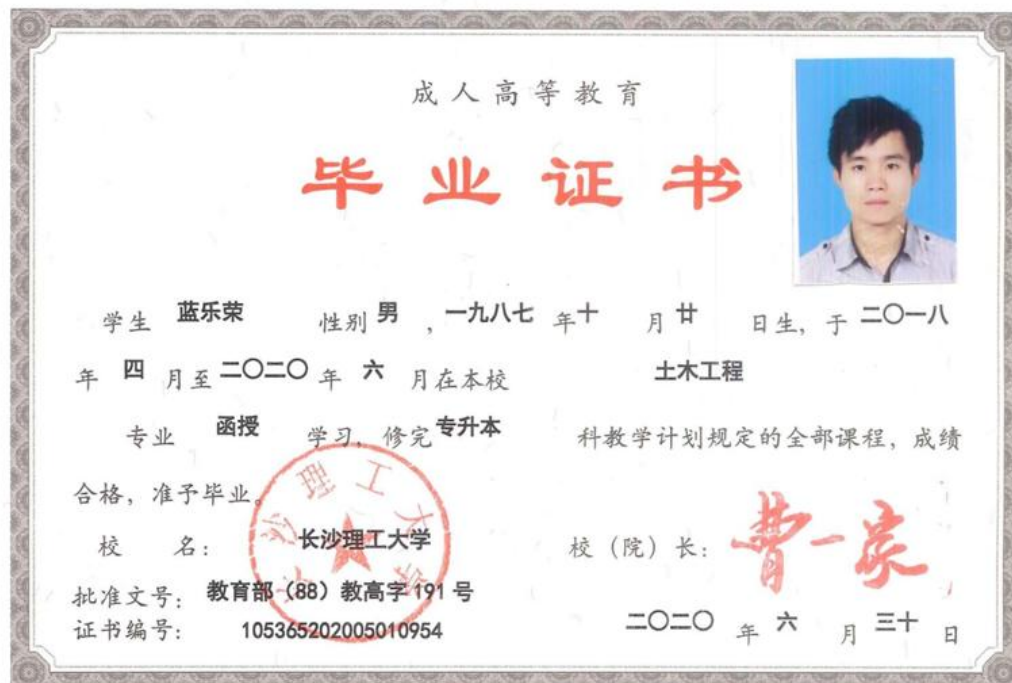 成人高等教育
毕业证书
学生 蓝乐荣 性别 男 ，一九八七 年十 月廿 日生，于 二〇一八
年 四 月至 二〇二〇 年 六 月在本校 土木工程
专业 函授 学习，修完 专升本 科教学计划规定的全部课程，成绩
合格，准予毕业。
长沙理工大学
校 名： 长沙理工大学 校（院）长： 曹一家
批准文号： 教育部（88）教高字 191 号
证书编号： 105365202005010954 二〇二〇 年 六 月 三十 日